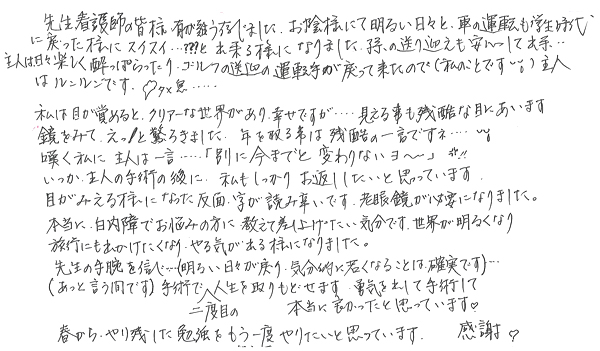 先生看護師の皆様、有難うございました。お陰様にて明るい日々と、車の運転も学生時代
に戻った様にスイスイ…???と出来る様になりました。孫の送り迎えも安心して出来…
主人は日々楽しく酔っぱらったり、ゴルフの送迎の運転手が戻って来たので(私のことです)主人
はルンルンです。♡タメ息……
私は目が覚めると、クリアーな世界があり、幸せですが…見える事も残酷な目にあいます
鏡をみて、えっ!と驚ろきました。年を取る事は残酷の一言ですネ……
嘆く私に主人は一言……「別に今までと変わりないヨ〜」
いつか、主人の手術の後に、私もしっかりお返ししたいと思っています。
目がみえる様になった反面、字が読み辛いです。老眼鏡が必要になりました。
本当に、白内障でお悩みの方に教えて差し上げたい気分です。世界が明るくなり
旅行にも出かけたくなり、やる気が出る様になりました。
先生の手腕を信じ…(明るい日々が戻り、気分的に若くなることは確実です)…
(あっと言う間です)手術で人生を取りもどせます 勇気を出して手術して
二度目の 本当に良かったと思っています♡
春から、やり残した勉強をもう一度やりたいと思っています。 感謝♡